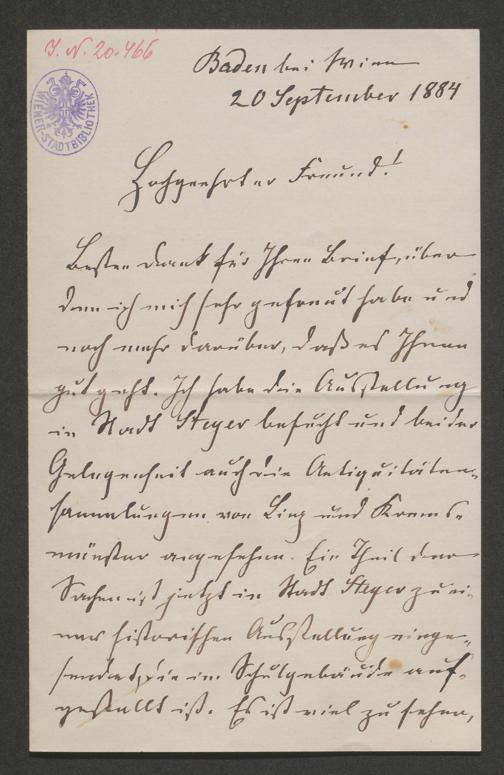 J. N. 20.466
WIENER-STADTBIBLIOTHEK
Baden bei Wien
20 September 1884
Hochgeehrter Freund!
Besten Dank für Ihren Brief, über
den ich mich sehr gefreut habe und
noch mehr darüber, daß es Ihnen
gut geht. Ich habe die Ausstellung
in Stadt Steyer besucht und bei der
Gelegenheit auch die Antiquitäten-
sammlungen von Linz und Krems-
münster angesehen. Ein Theil der
Sachen ist jetzt in Stadt Steyer zu ei-
ner historischen Ausstellung einge-
sendet, die im Schulgebäude auf-
gestellt ist. Es ist viel zu sehen,